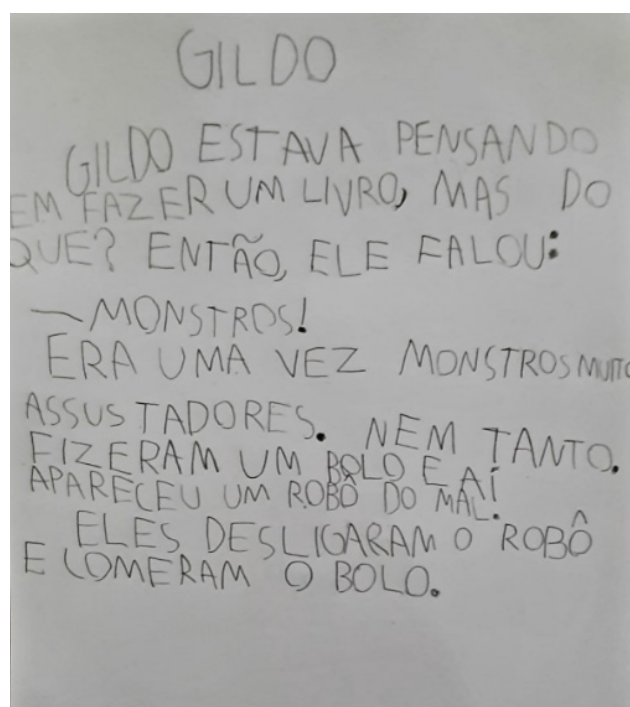 GILDO
GILDO ESTAVA PENSANDO
EM FAZER UM LIVRO, MAS DO
QUE? ENTÃO, ELE FALOU:
— MONSTROS!
ERA UMA VEZ MONSTROS MUITO
ASSUSTADORES. NEM TANTO.
FIZERAM UM BOLO E AÍ
APARECEU UM ROBÔ DO MAL.
ELES DESLIGARAM O ROBÔ
E COMERAM O BOLO.